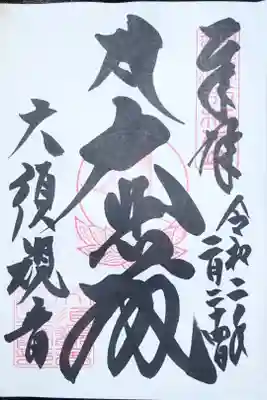 奉拝
令和二年
二月二十四日
大悲殿
大須観音